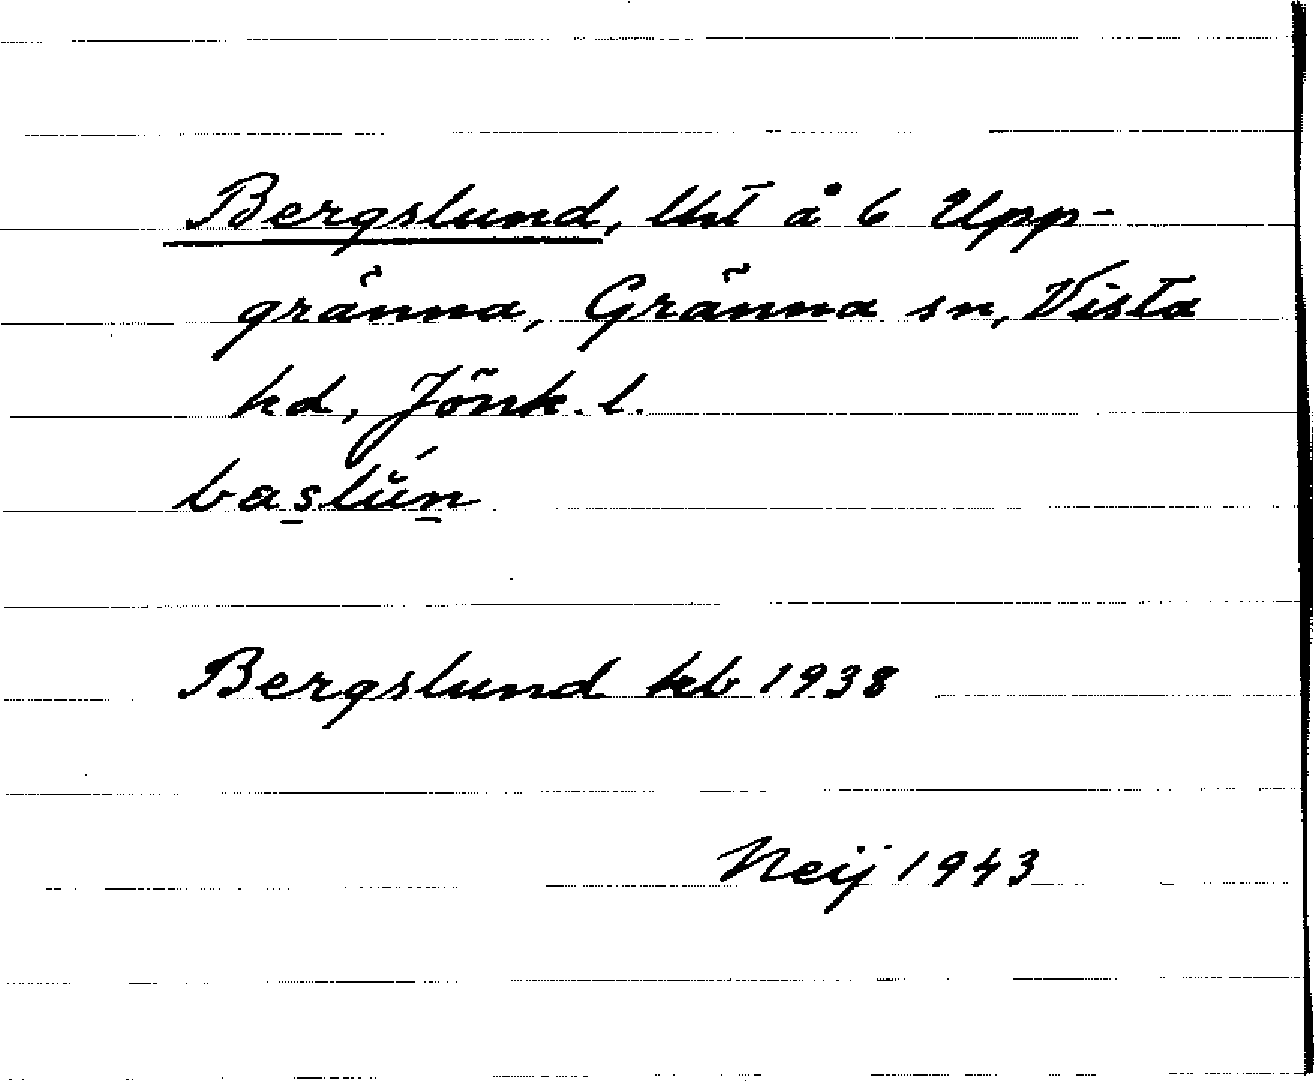 Bergslund, lht å 6 Upp-
gränna, Gränna sn, Vista
hd, Jönk. l.
Bergslund kb 1938
Neij 1943